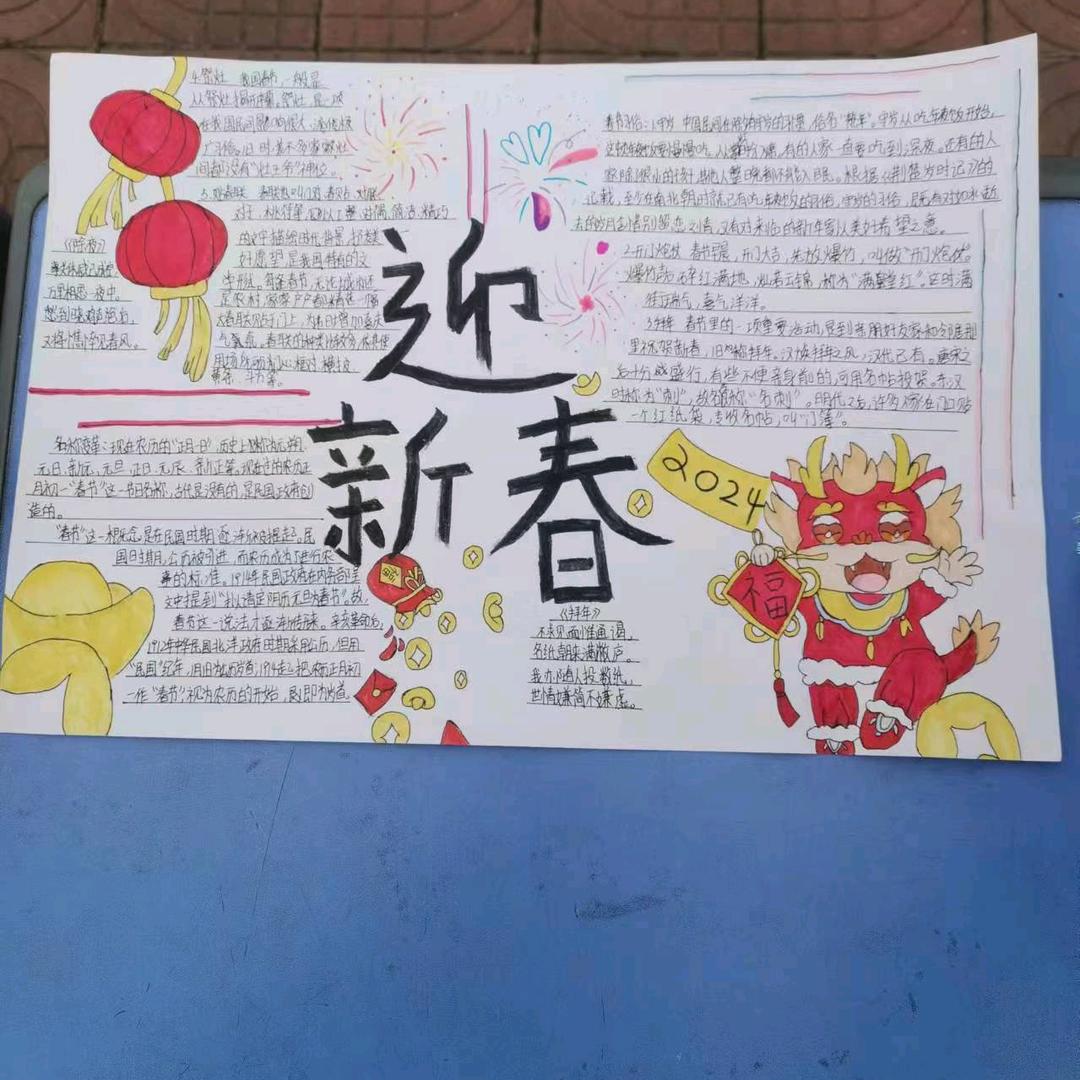 迎
新春
2024
福
4.祭灶 我国春节,一般是
从祭灶揭开序幕。祭灶,是一项
在我国民间影响很大、流传极
广习俗。旧时,差不多家家灶
间都设有“灶王爷”神位。
5.贴春联 春联也叫门对、春贴、对联、
对子、桃符等,它以工整、对偶、简洁、精巧
的文字描绘时代背景,抒发美
好愿望,是我国特有的文
学形式。每逢春节,无论城市还
是农村,家家户户都要精选一幅
大春联贴于门上,为节日增加喜庆
气氛。春联的种类比较多,依其使
用场所可
《除夜》
万里相思一夜中。
愁到晓鸡声绝后,
又将憔悴见春风。
春节习俗:1.守岁 中国民间在除夕有守岁的习惯,俗名“熬年”。守岁从吃年夜饭开始,
这顿年夜饭要慢慢吃,从掌灯入席,有的人家一直要吃到深夜。
记载,至少在南北朝时就已有吃年夜饭的习俗。守岁的习俗,既有对如水逝
去的岁月含惜别留恋之情,又有对来临的新年寄以美好希望之意。
2.开门炮仗 春节早晨,开门大吉,先放爆竹,叫做“开门炮仗”。
爆竹声后,碎红满地,灿若云锦,称为“满堂红”。这时满
街瑞气,喜气洋洋。
3.拜年 春节里的一项重要活动,是到亲朋好友家和邻居那
里祝贺新春,旧称拜年。汉族拜年之风,汉代已有。唐宋之
后十分盛行,有些不便亲身前的,可用名帖投贺。东汉
时称为“刺”,故名片称“名刺”。明代之后,许多人家在门口贴
一个红纸袋,专收名帖,叫“门簿”。
名称变革:现在农历的“正月一日”,历史上则称为元朔、
元日、新元、元旦、正日、元辰、新正等,现在它的农历正
月初一“春节”这一节日名称,古代是没有的,是民国政府创
造的。
“春节”这一概念,是在民国时期逐渐被提起。民
国时期,公历被引进,而农历成为了进行农
事的标准,1914年民国政府在内务部呈
文中提到“拟请定阴历元旦为春节”。故,
春节这一说法才逐渐传开来。辛亥革命后,
1912年中华民国北洋政府时期采用公历,但用
作“春节”,视为农历的开始
《拜年》
不求见面惟通谒,
名纸朝来满敝庐。
我亦随人投数纸,
世情嫌简不嫌虚。